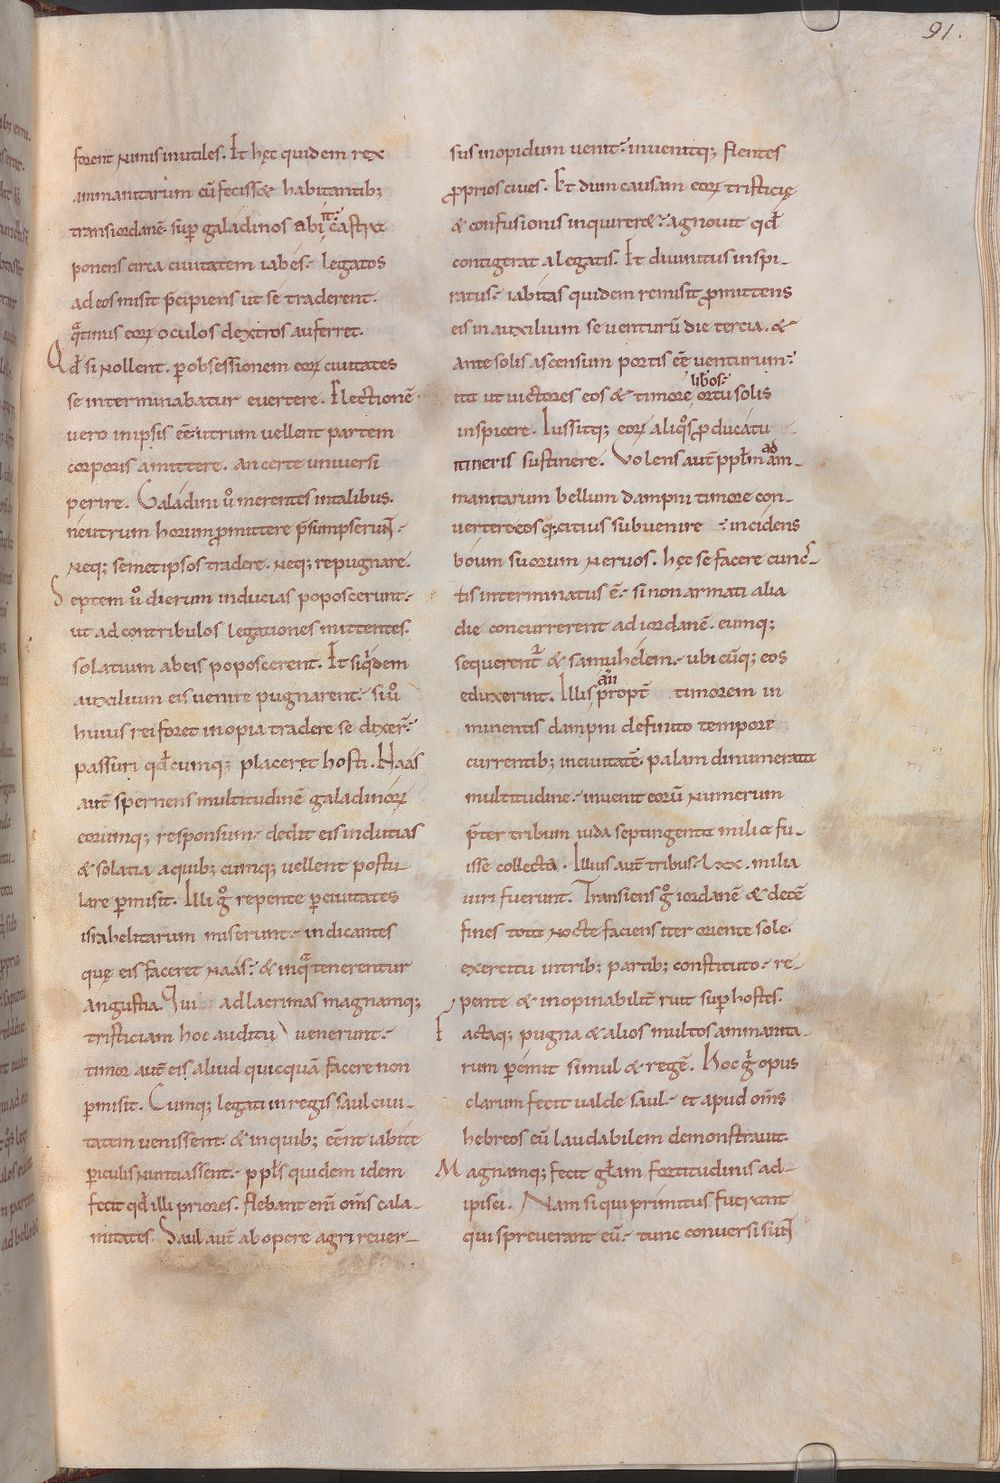 91.
forent nimis inutiles. Et hęc quidem rex
ammanitarum cū fecisset habitantib;
transiordanē. sup galadinos abiit. castra
ponens circa ciuitatem iabes. legatos
ad eos misit p̄cipiens ut se traderent.
q̄tinus eorꝝ oculos dextros auferret.
Qđ si nollent. ꝑ obsessionem eorꝝ ciuitates
se interminabatur euertere. Electionē
uero in ipsis eē. utrum uellent partem
corporis amittere. an certe uniuersi
perire. Galadini ů merentes in talibus.
neutrum horum ꝓmittere p̄sumpserunt.
Neq; semetipsos tradere. neq; repugnare.
Septem ů dierum inducias poposcerunt.
ut ad contribulos legationes mittentes.
solatium ab eis poposcerent. Et siq̇dem
auxilium eis uenire pugnarent. siů
huius rei foret inopia tradere se dixer̄.
passuri qđcumq; placeret hosti. Naas
aut̄ spernens multitudinē galadinorꝝ
eorumq; responsum. dedit eis inducias
& solatia a quib; cumq; uellent postu
lare ꝑmisit. Illi g̊ repente ꝑ ciuitates
israhelitarum miserunt. indicantes
quę eis faceret naas. & in q̄ tenerentur
angustia. Qui ad lacrimas magnamq;
tristiciam hoc auditu uenerunt.
timor aut̄ eis aliud quicquā facere non
ꝑmisit. Cumq; legati in regis saul ciui
tatem uenissent. & in quib; eēnt iabite
ꝑiculis nuntiassent. ppl̄s quidem idem
fecit qđ illi priores. flebant eni om̄s cala-
mitates. Saul aut̄ ab opere agri reuer-
sus in opidum uenit. inuenitq; flentes
ꝓprios ciues. Et dum causam eorꝝ tristicię
& confusionis inquireret. agnouit qđ
contigerat a legatis. Et diuinitus inspi-
ratus. iabitas quidem remisit ꝓmittens
eis in auxilium se uenturū die tercia. &
ante solis ascensum portis eē uenturum.
ita ut uictores eos & timore libos. ortu solis
inspicere. Iussitq; eorꝝ aliq̊s ꝓ ducatu
itineris sustinere. Volens aut̄ ppl̄m ad am-
manitarum bellum dampni timore con-
uertere eosq; citius subuenire . incidens
boum suorum neruos. hęc se facere cunc-
tis interminatus ē. si non armati alia
die concurrerent ad iordanē. eumq;
sequerent̄ & samuhelem. ubicūq; eos
eduxerint. Illis aūt propt̄ timorem in
minentis dampni definito tempore
currentib; in ciuitatē. palam dinumerata
multitudine. inuenit eorū numerum
p̄ter tribum iuda septingenta milia fu-
isse collecta. Illius aut̄ tribus. lxx. milia
uiri fuerunt. Transiens g̊ iordanē & decē
fines tota nocte faciens iter oriente sole.
exercitu in trib; partib; constituto. re-
pente & inopinabilit̄ ruit suꝑ hostes.
Factaq; pugna & alios multos ammanita-
rum ꝑemit simul & regē. Hoc g̊ opus
clarum fecit ualde saul. et apud om̄s
hebreos eū laudabilem demonstrauit.
Magnamq; fecit gl̄am fortitudinis ad-
ipisci. Nam si qui primitus fuerant
qui spreuerant eū. tunc conuersi sunt